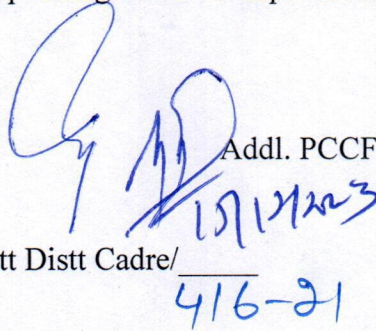 Addl. PCCF
15/12/2023
tt Distt Cadre/______
416-21